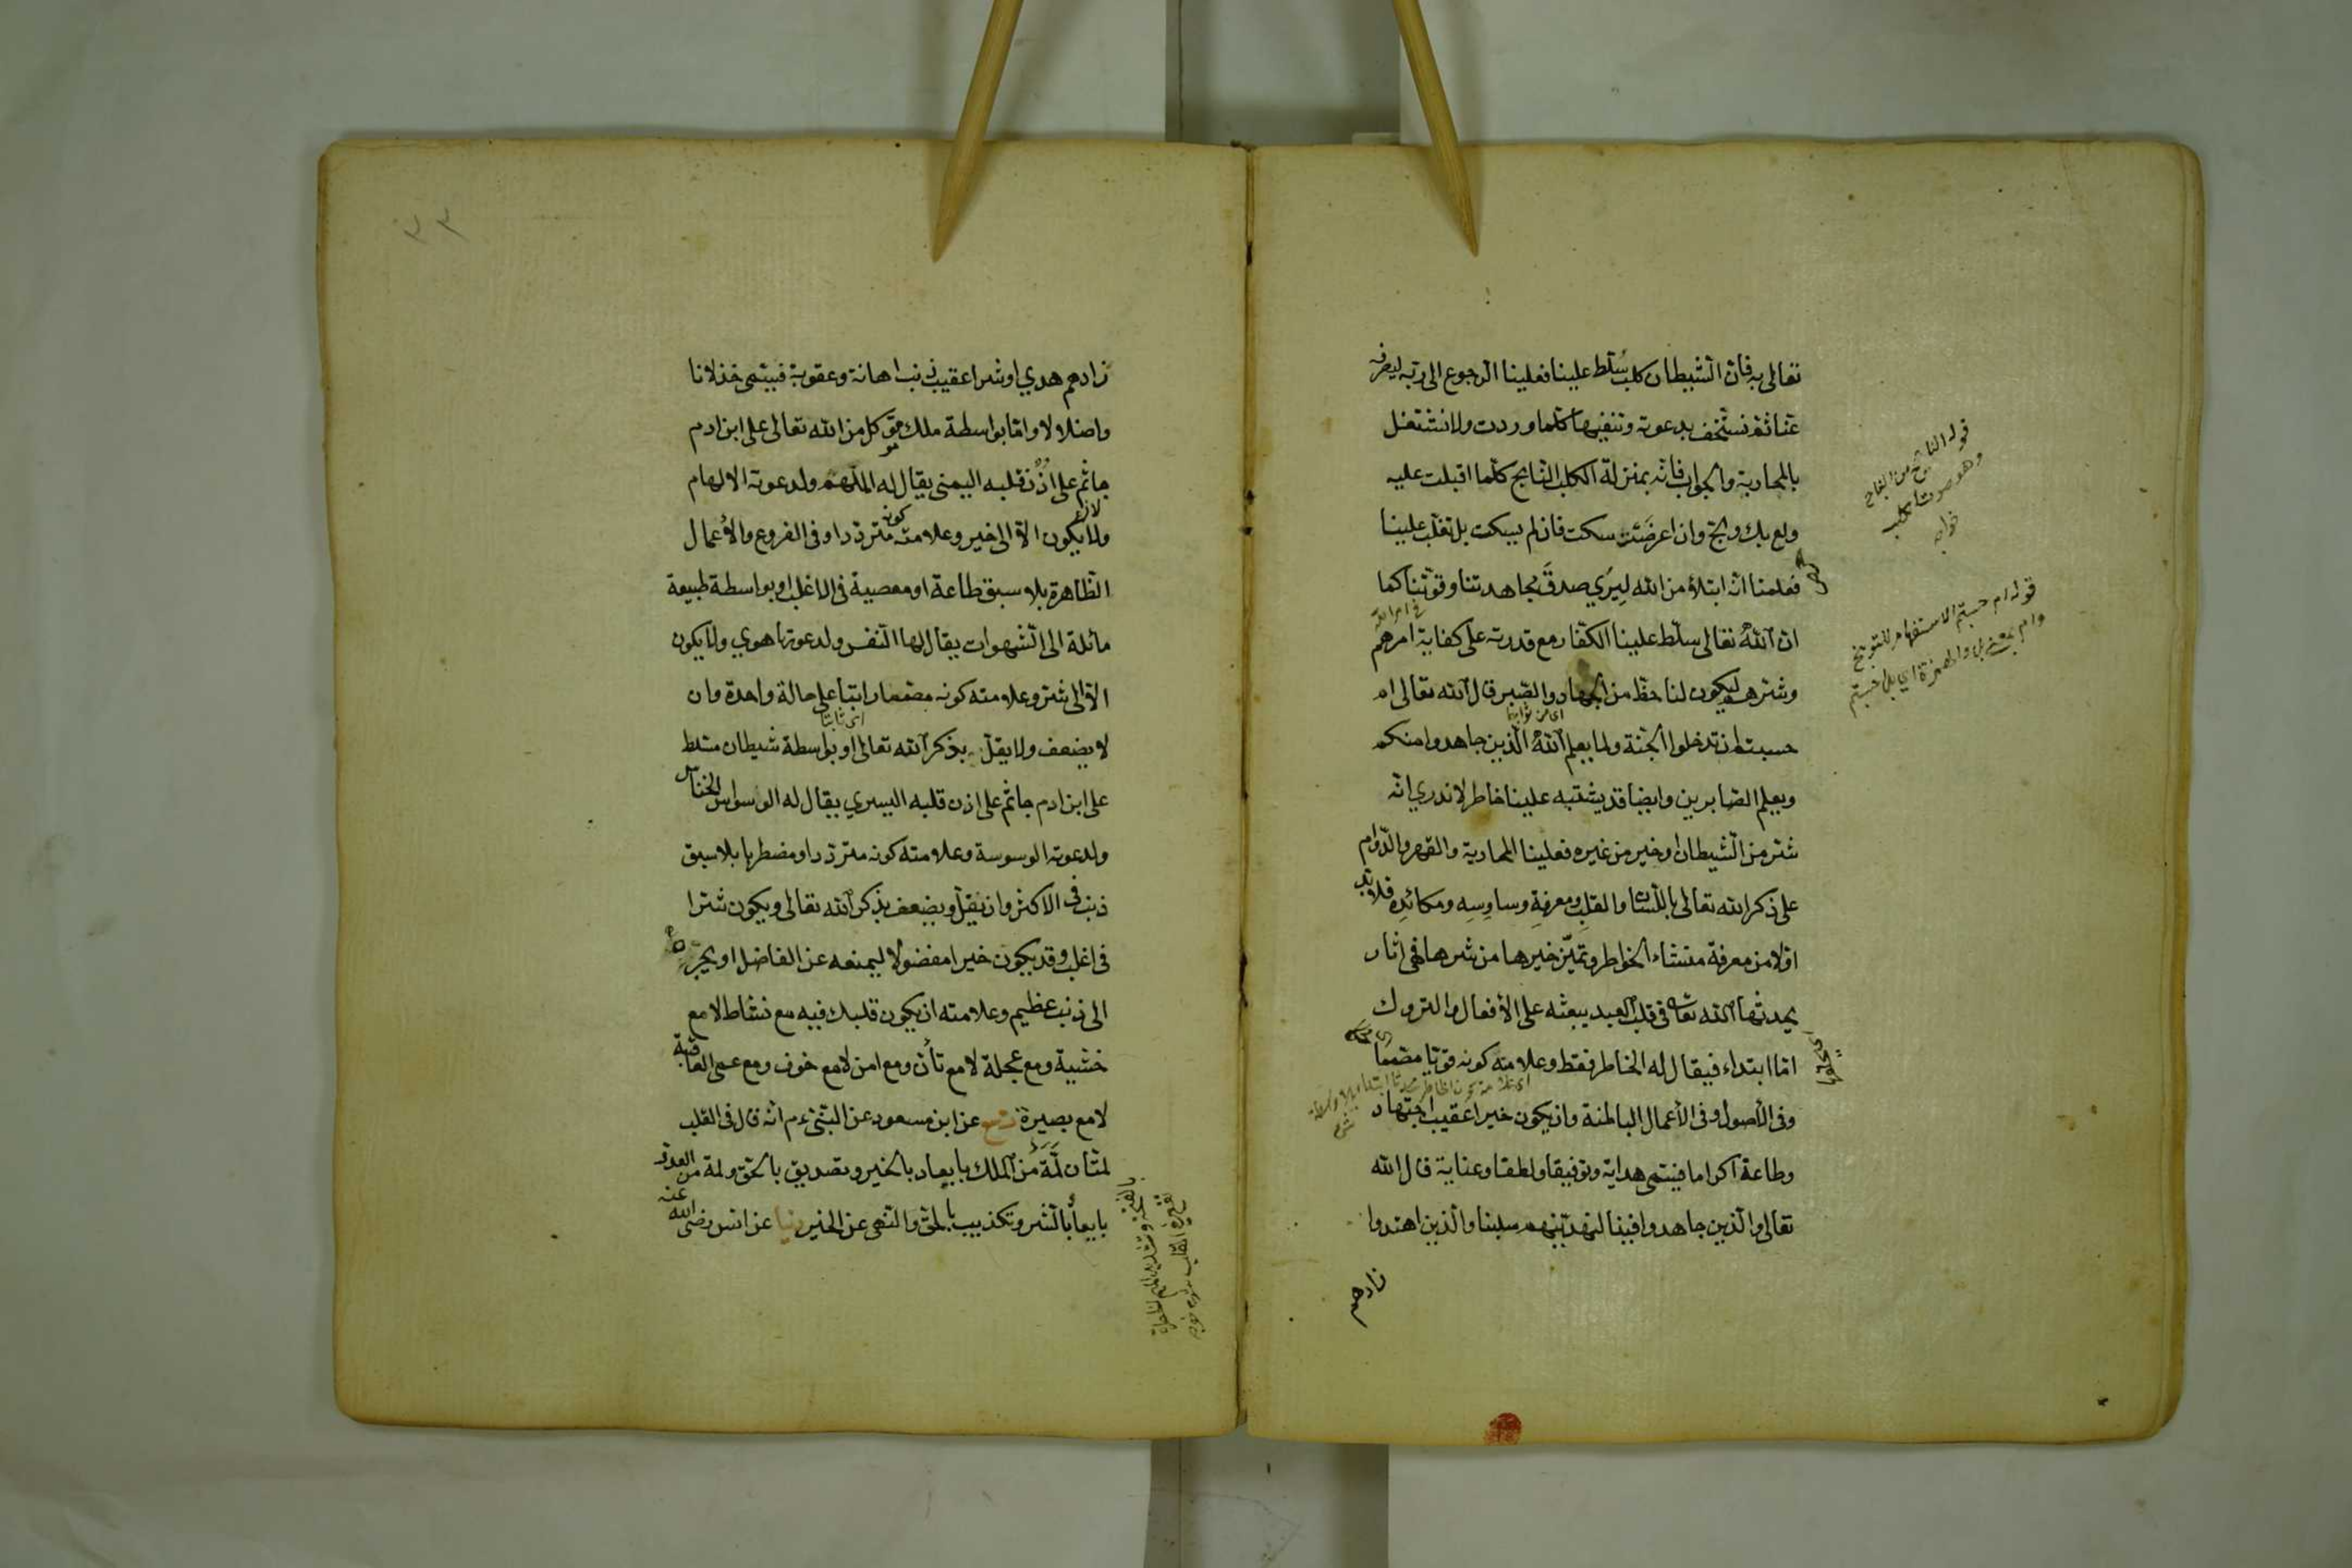 تعالى به فان الشيطان كلب سُلّط علينا فعلينا الرجوع الى ربه ليصرفه
عنا ثم نستخف بدعوته وننفيها كلما وردت ولا نشتغل
بالمحاربة والجواب فانه بمنزلة الكلب النابح كلما اقبلت عليه
ولع بك ولج وان اعرضت سكت فان لم يسكت بل تغلب علينا
فعلمنا انه ابتلاء من الله ليرى صدق مجاهدتنا وقوتنا كما
ان الله تعالى سلط علينا الكفار مع قدرته على كفاية امرهم
وشرهم ليكون لنا حظ من الجهاد والصبر قال الله تعالى ام
حسبتم ان تدخلوا الجنة ولما يعلم الله الذين جاهدوا منكم
ويعلم الصابرين وايضا قد يشتبه علينا خاطر لا ندري انه
شر من الشيطان او خير من غيره فعلينا المحاربة والقهر والدوام
على ذكر الله تعالى باللسان والقلب ومعرفة وساوسه ومكائده فلا بد
اولا من معرفة منشاء الخواطر وتميز خيرها من شرها فهي اثار
يحدثها الله تعالى في قلب العبد يبعثه على الأفعال والتروك
اما ابتداء فيقال له الخاطر فقط وعلامته كونه قويا مصمما
وفي الأصول وفي الأعمال الباطنة وان يكون خيرا عقيب اجتهاد
وطاعة اكراما فيسمى هداية وتوفيقا ولطفا وعناية قال الله
تعالى والذين جاهدوا فينا لنهدينهم سبلنا والذين اهتدوا
زادهم
قوله النابح من النباح
وهو صوت الكلب
خواجه
قوله ام حسبتم الاستفهام للتوبيخ
وام بمعنى بل والهمزة اي بل حسبتم
زادهم هدي او شرا عقيب ذنب اهانة وعقوبة فيسمى خذلانا
واضلالا واما بواسطة ملك موكل من الله تعالى على ابن ادم
جاثم على اذن قلبه اليمنى يقال له الملهم ولدعوته الالهام
ولا يكون الا الى خير وعلامته كونه مترددا وفي الفروع والأعمال
الظاهرة بلا سبق طاعة او معصية في الاغلب او بواسطة طبيعة
مائلة الى الشهوات يقال لها النفس ولدعوتها هوي ولا يكون
الا الى شر وعلامته كونه مصمما راتبا على حالة واحدة وان
لا يضعف ولا يقل بذكر الله تعالى او بواسطة شيطان مسلط
على ابن ادم جاثم على اذن قلبه اليسري يقال له الوسواس الخناس
ولدعوته الوسوسة وعلامته كونه مترددا ومضطربا بلا سبق
ذنب في الاكثر وان يقل ويضعف بذكر الله تعالى ويكون شرا
في اغلب وقد يكون خيرا مفضولا ليمنعه عن الفاضل او يجره
الى ذنب عظيم وعلامته ان يكون قلبك فيه مع نشاط لا مع
خشية ومع عجلة لا مع تأن ومع امن لا مع خوف ومع عمى العاقبة
لا مع بصيرة عن ابن مسعود عن النبي عم انه قال في القلب
لمتان لمة من الملك بايعاد بالخير وتصديق بالحق ولمة من العدو
بايعاد بالشر وتكذيب بالحق والنهى عن الخير دنيا عن انس رضي الله عنه